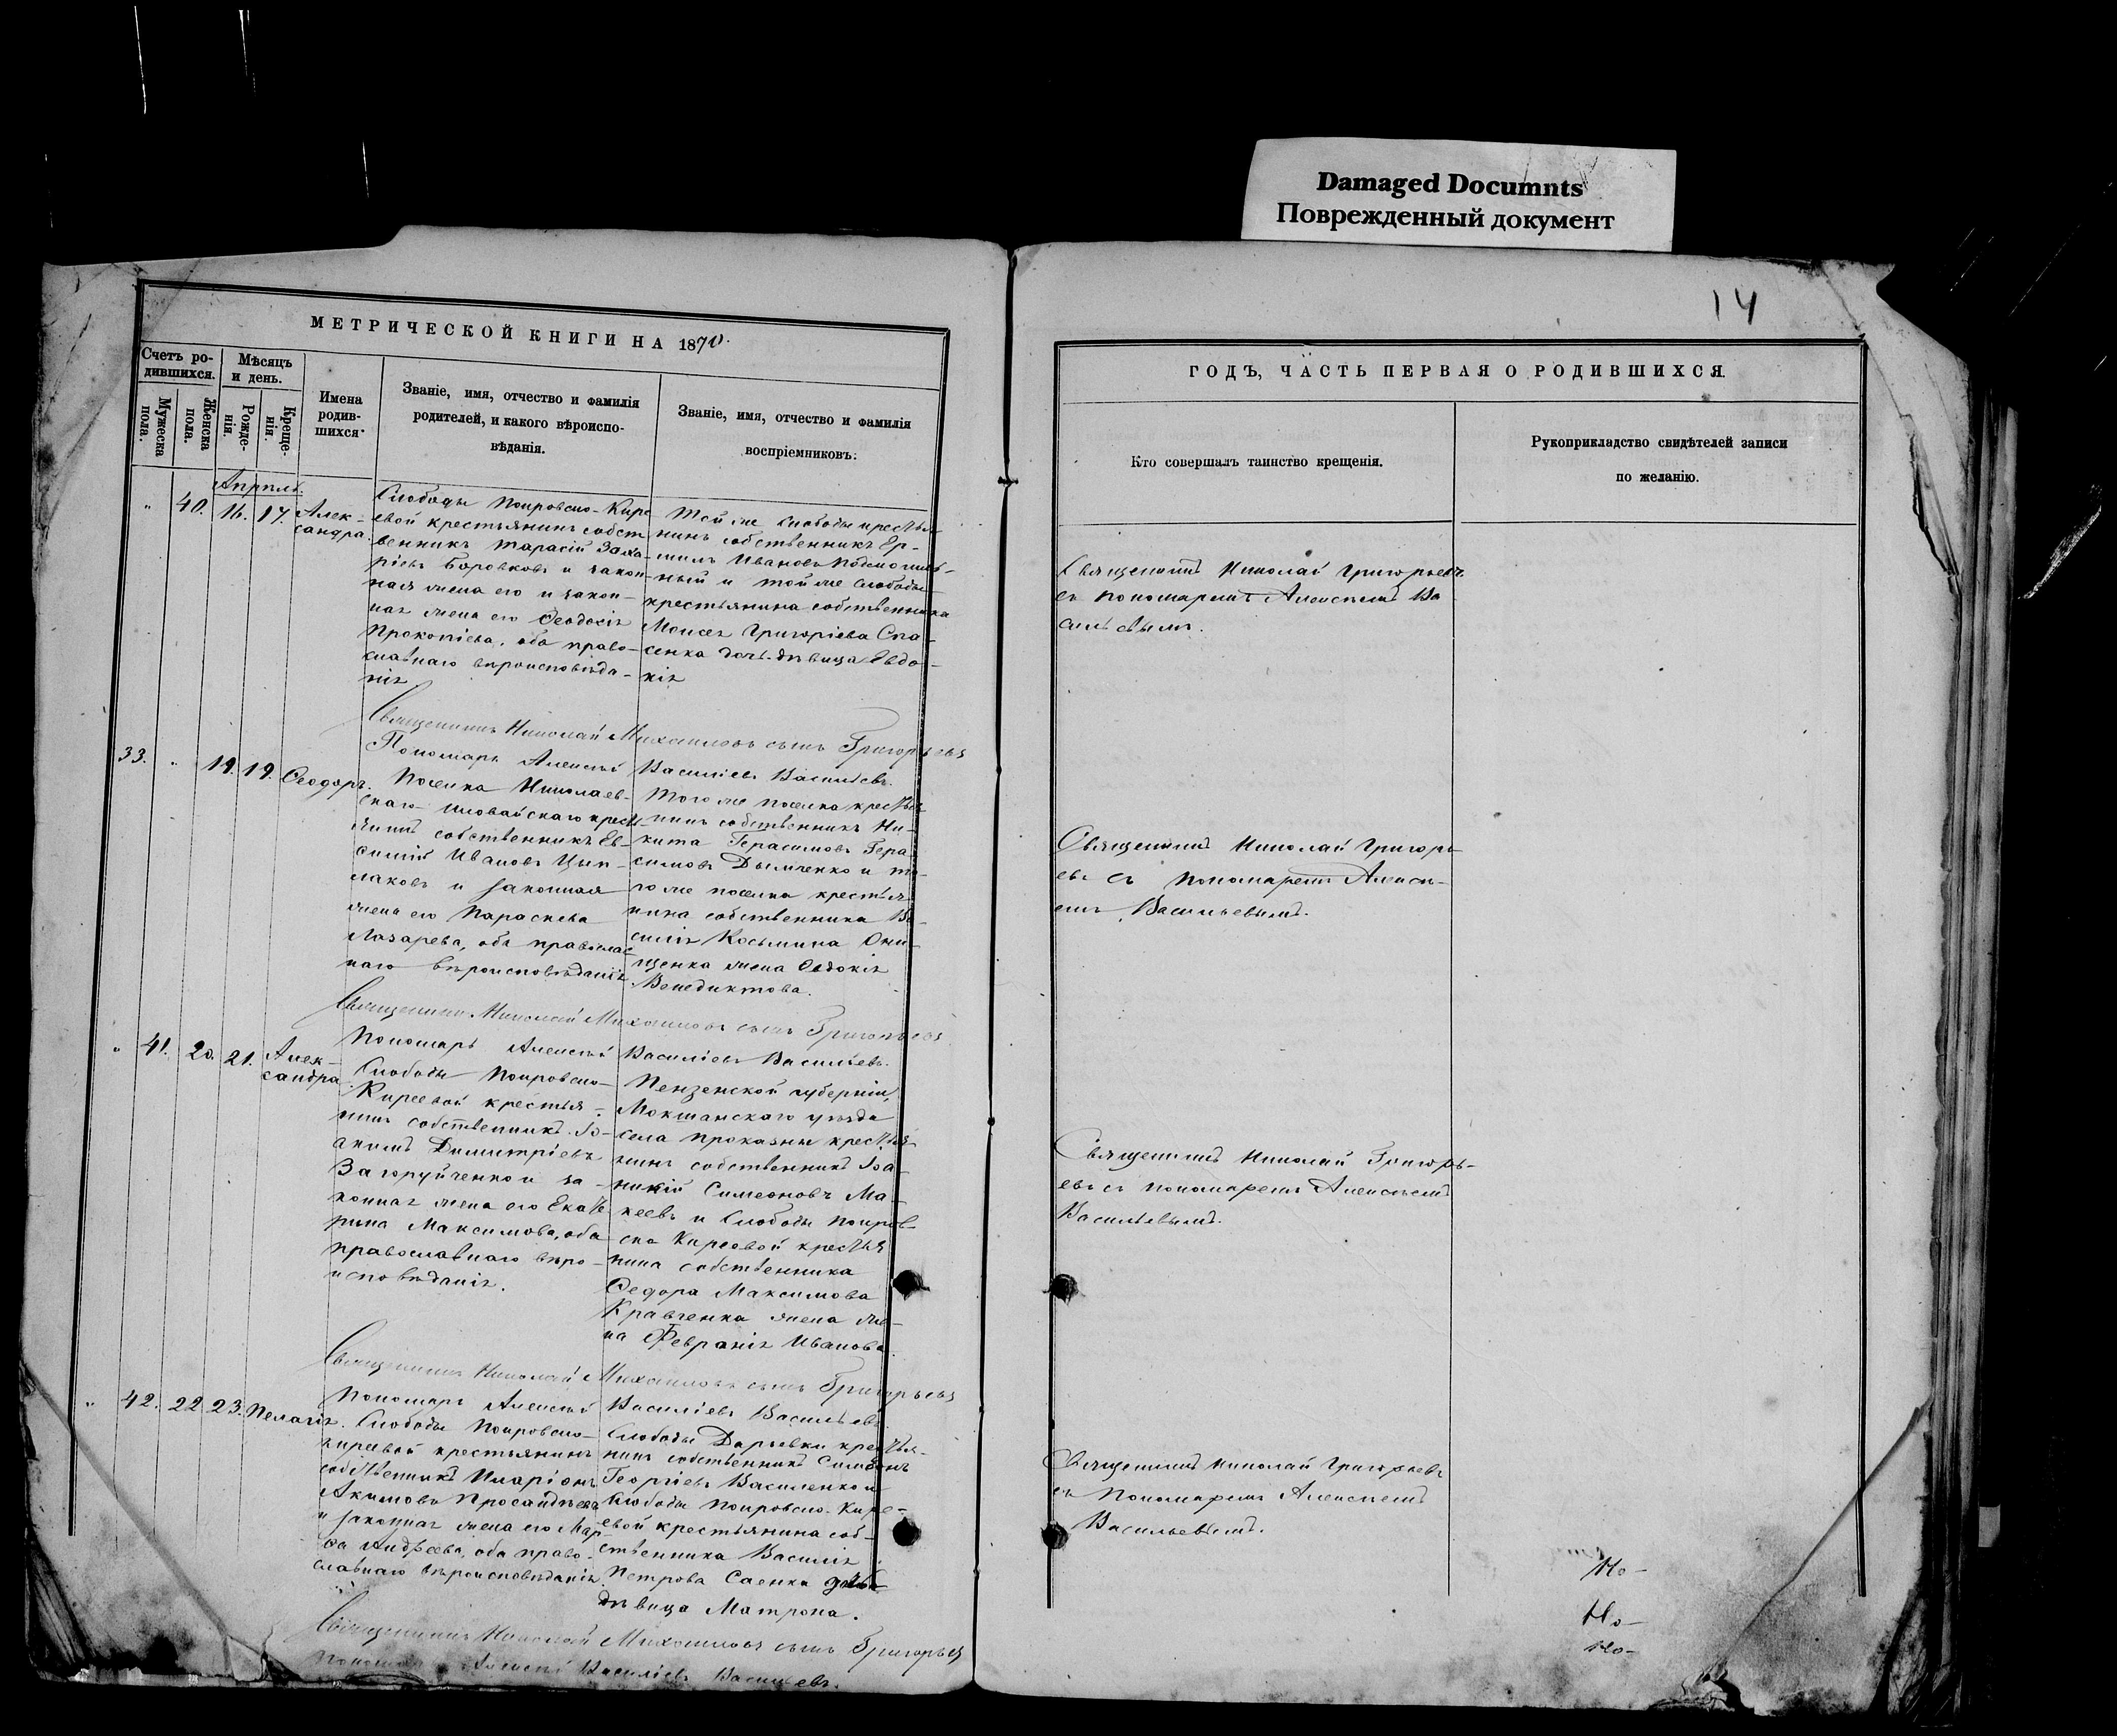 Damaged Documnts
Поврежденный документ
14
МЕТРИЧЕСКОЙ КНИГИ НА 1870.
Счетъ ро-
дившихся.
Мужеска
пола.
Женска
пола.
Мѣсяцъ
и день.
Рожде-
нія.
Креще-
нія.
Имена
родив-
шихся.
Званіе, имя, отчество и фамилія
родителей, и какого вѣроиспо-
вѣданія.
Званіе, имя, отчество и фамилія
воспріемниковъ.
Апрѣль.
" 40. 16. 17. Алек-
сандра.
Слободы Покровско-Кире
евой крестьянинъ собст
венникъ Тарасій Заха-
ріевъ Боровковъ и закон-
ная жена его и закон-
ная жена его Ѳеодосія
Прокопіева, оба право-
славнаго вѣроисповѣда-
нія
Той же слободы крестья-
нинъ собственникъ Ер-
милъ Ивановъ
и той же слободы
крестьянина собственника
Моисея Григоріева Спа-
сенка дочь дѣвица Евдо-
кія
Священникъ Николай Михаиловъ сынъ Григорьевъ
Пономарь Алексѣй Василіевъ Васильевъ.
33. " 19. 19. Ѳеодоръ.
Поселка Николаев-
скаго-Иловайскаго крест-
янинъ собственникъ Ев-
симій Ивановъ
и законная
жена его Параскева
Лазарева, оба православ
наго вѣроисповѣданія.
Того же поселка крестья-
нинъ собственникъ Ни-
кита Герасимовъ Гера-
симовъ Дымченко и то-
го же поселка крестья-
нина собственника Ва-
силія Косьмина Они-
щенка жена Евдокія
Венедиктова.
Священникъ Николай Михаиловъ сынъ Григорьевъ
Пономарь Алексѣй Василіевъ Васильевъ.
" 41. 20. 21. Алек-
сандра.
Слободы Покровско-
Киреевой крестья-
нинъ собственникъ Іо-
акимъ Димитріевъ
Загоруйченко и за-
конная жена его Екате
рина Максимова, оба
православнаго вѣро-
исповѣданія.
Пензенской губерніи,
Мокшанскаго уѣзда
села Проказны крестья-
нинъ собственникъ Іоа-
никій Симеоновъ Ма-
кеевъ и Слободы Покров-
ско Киреевой крестья
нина собственника
Ѳедора Максимова
Кравченка жена же-
на Февранія Иванова.
Священникъ Николай Михаиловъ сынъ Григорьевъ
Пономарь Алексѣй Василіевъ Васильевъ
" 42. 22 23. Пелагія.
Слободы Покровско-
Киреевой крестьянинъ
собственникъ Иларіонъ
Акимовъ
и законная жена его Мар-
ѳа Андреева, оба право-
славнаго вѣроисповѣданія.
Слободы Дарьевки крестья-
нинъ собственникъ Симеонъ
Георгіевъ Василенко и
слободы Покровско-Кире-
евой крестьянина соб-
ственника Василія
Петрова Саенка дочь
дѣвица Матрона.
Священникъ Николай Михаиловъ сынъ Григорьевъ
Пономарь Алексѣй Василіевъ Васильевъ.
ГОДЪ, ЧАСТЬ ПЕРВАЯ О РОДИВШИХСЯ.
Кто совершалъ таинство крещенія.
Рукоприкладство свидѣтелей записи
по желанію.
Священникъ Николай Григорьевъ
съ пономаремъ Алексѣемъ Ва
сильевымъ.
Священникъ Николай Григорь-
евъ съ пономаремъ Алексѣ-
емъ Васильевымъ.
Священникъ Николай Григорь-
евъ съ пономаремъ Алексѣемъ
Васильевымъ.
Священникъ Николай Григорьевъ
съ пономаремъ Алексѣемъ
Васильевымъ.
Но-
Но-
Но-